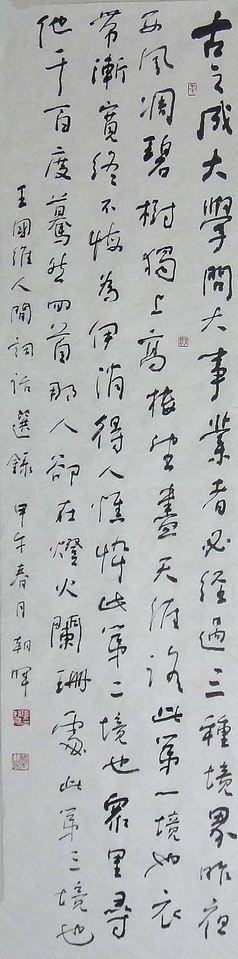 古之成大學問大事業者必經過三種境界昨夜
西風凋碧樹獨上高樓望盡天涯路此第一境也衣
帶漸寬終不悔為伊消得人憔悴此第二境也眾里尋
他千百度驀然回首那人卻在燈火闌珊處此第三境也
王國維人間詞話選錄 甲午春月朝暉